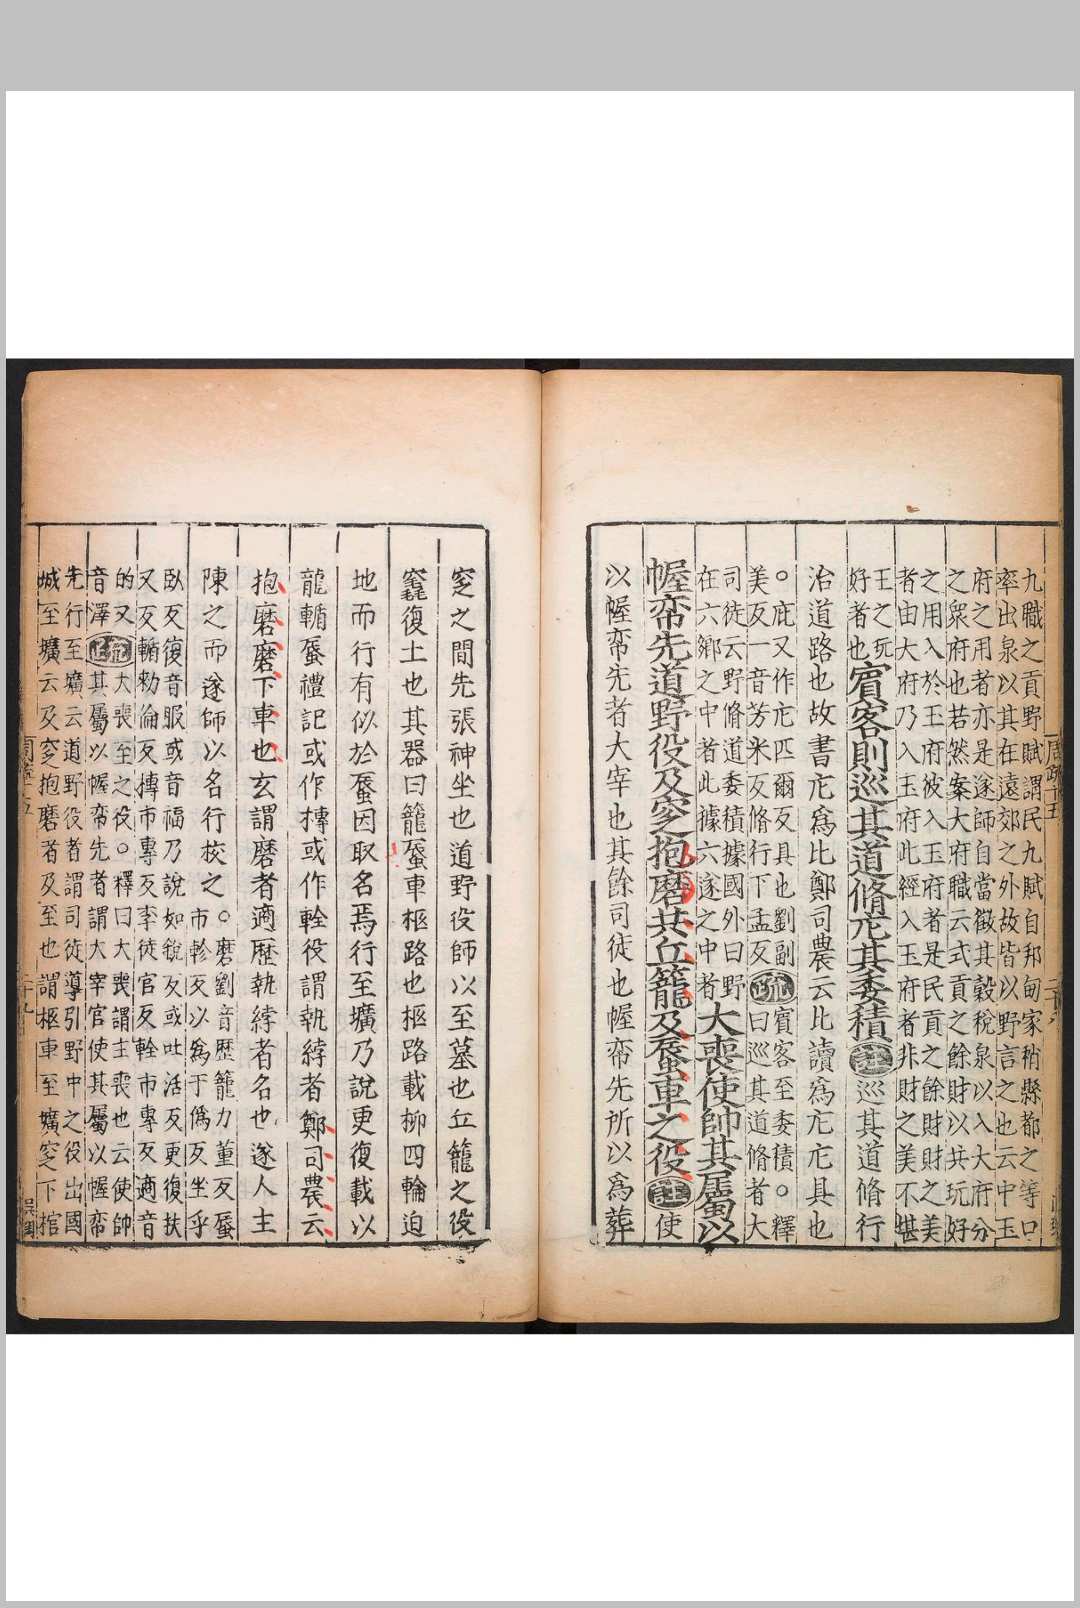 九職之貢野賦謂民九賦自邦甸家稍縣都之等口
率出泉以其在遠郊之外故皆以野言之也云中玉
府之用者亦是遂師自當徵其穀稅泉以入大府分
之衆府也若然案大府職云式貢之餘財以共玩好
之用入於王府彼入玉府者是民貢之餘財財之美
者由大府乃入玉府此經入玉府者非財之美不堪
王之玩
好者也
賓客則巡其道脩庀其委積
注
巡其道脩行
治道路也故書庀爲比鄭司農云比讀爲庀庀具也
○庇又作庀匹爾反具也劉副
美反一音芳米反脩行下孟反
疏
賓客至委積○釋
曰巡其道脩者大
司徒云野脩道委積據國外曰野
在六鄉之中者此據六遂之中者
大喪使帥其屬以
幄帟先道野役及窆抱磨共丘籠及蜃車之役
注
使
以幄帟先者大宰也其餘司徒也幄帟先所以爲葬
窆之間先張神坐也道野役師以至墓也丘籠之役
竁復土也其器曰籠蜃車柩路也柩路載柳四輪迫
地而行有似於蜃因取名焉行至壙乃說更復載以
龍輴蜃禮記或作槫或作輇役謂執綍者鄭司農云
抱磨磨下車也玄謂磨者適歷執綍者名也遂人主
陳之而遂師以名行校之
○磨劉音歷籠力董反蜃
市軫反以爲于僞反坐乎
臥反復音服或音福乃說如銳反或吐活反更復扶
又反輴勑倫反槫市專反李徒官反輇市專反適音
的又
音澤
疏
大喪至之役○釋曰大喪謂主喪也云使帥
其屬以幄帟先者謂大宰官使其屬以幄帟
先行至壙云道野役者謂司徒導引野中之役出國
城至壙云及窆抱磨者及至也謂柩車至壙窆下棺
周疏十五
二十八
二十九
吳珮